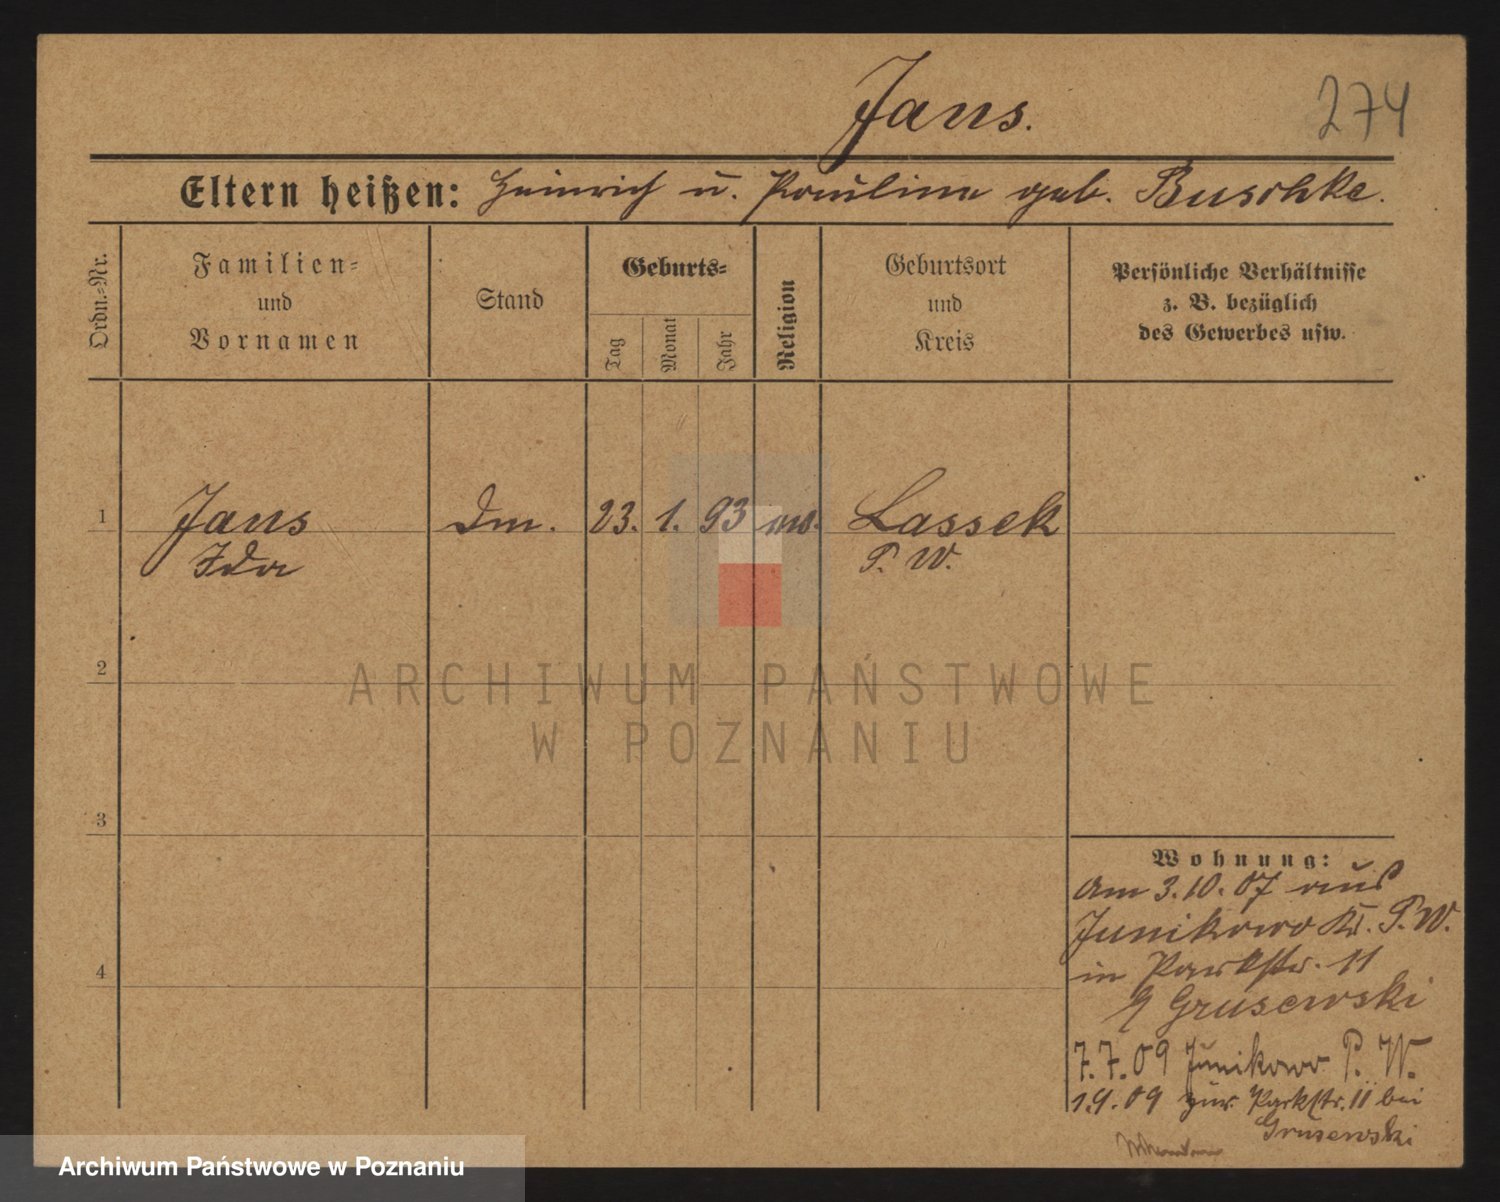 Jans.
274
Eltern heißen: Heinrich u. Paulina geb. Buschke.
Ordn.=Nr.
Familien=
und
Vornamen
Stand
Geburts=
Tag
Monat
Jahr
Religion
Geburtsort
und
Kreis
Persönliche Verhältnisse
z. B. bezüglich
des Gewerbes usw.
1 Jans Dm. 23. 1. 93 Lassek
Ida P. W.
2
3
4
Wohnung:
am 3.10.07 aus
Junikowo Kr. P. W.
in Parkstr. 11
Grusewski
7.7.09 Junikowo P. W.
1.9.09 zur. Parkstr. 11 bei
Grusewski
ARCHIWUM PAŃSTWOWE
W POZNANIU
Archiwum Państwowe w Poznaniu